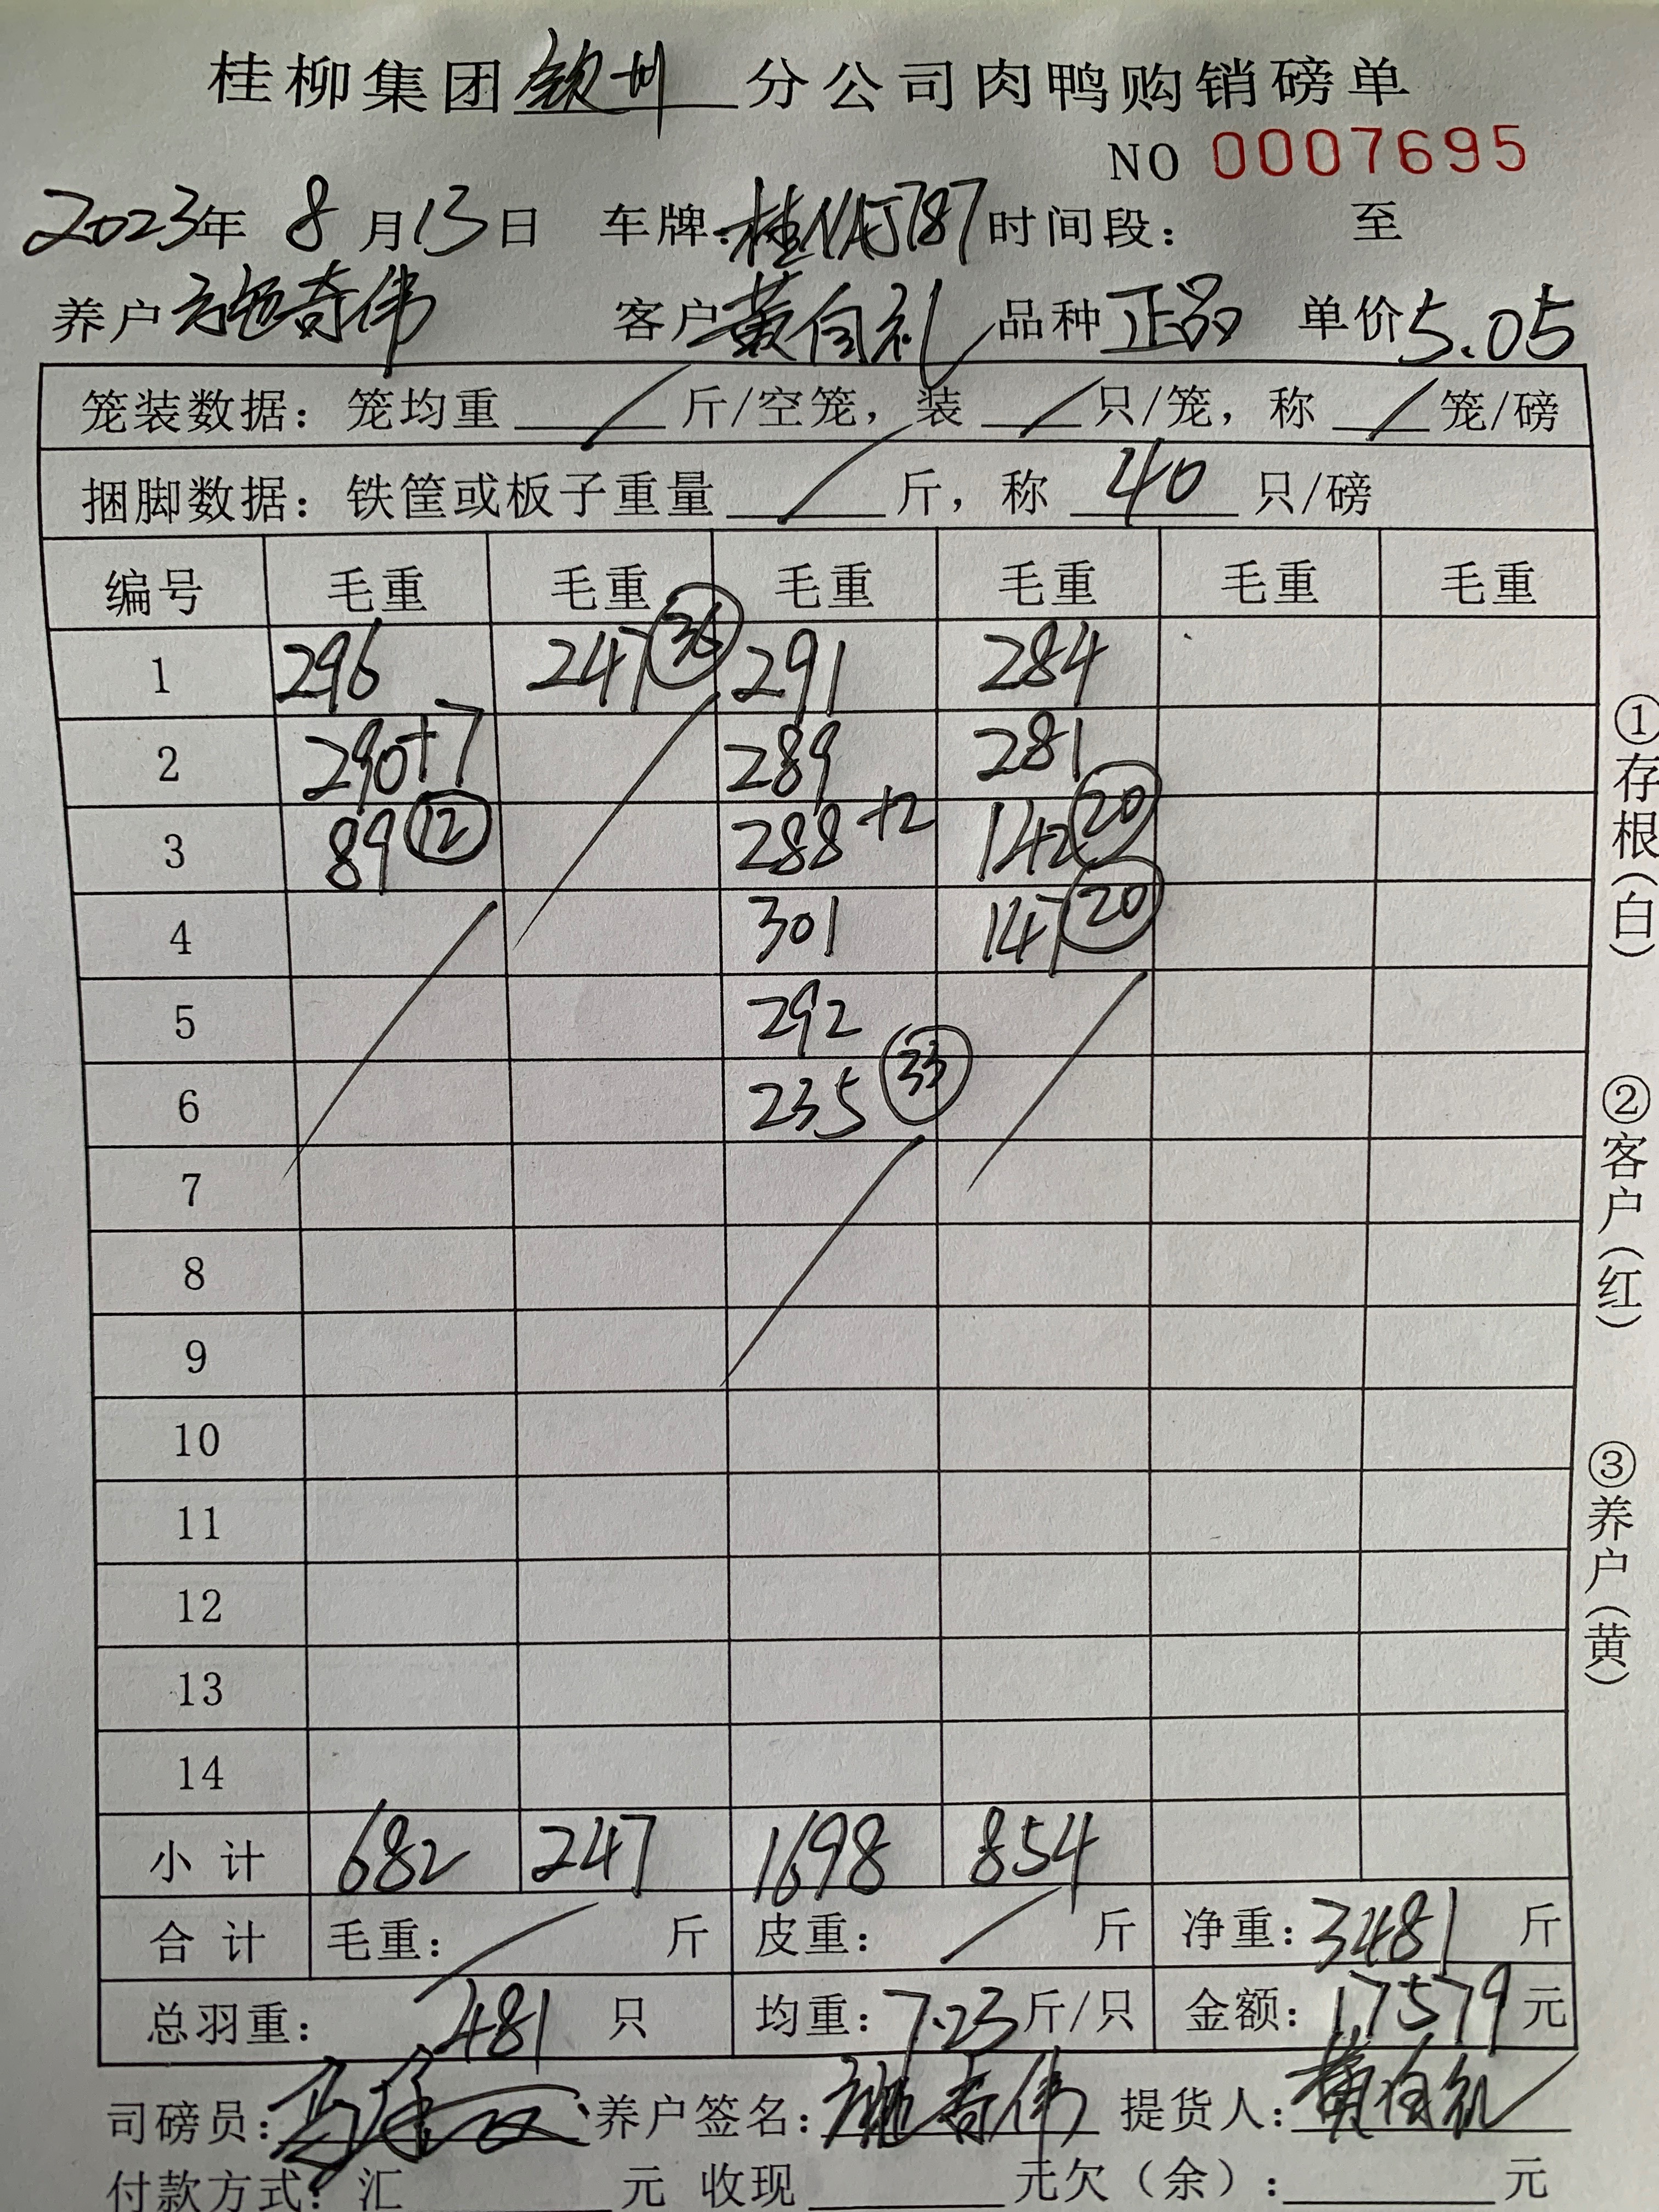 桂柳集团钦州分公司肉鸭购销磅单
NO 0007695
2023年 8月13日 车牌:桂NAJ787 时间段: 至
养户施奇伟 客户黄自礼 品种正品 单价5.05
笼装数据: 笼均重 / 斤/空笼, 装 / 只/笼, 称 / 笼/磅
捆脚数据: 铁筐或板子重量 / 斤, 称 40 只/磅
编号 毛重 毛重 毛重 毛重 毛重 毛重
1 296 247 36 291 284
2 290+7 289 281
3 89 12 288+2 142 20
4 301 147 20
5 292
6 235 33
7
8
9
10
11
12
13
14
小计 682 247 1698 854
合计 毛重: / 斤 皮重: / 斤 净重: 3481 斤
总羽重: 481 只 均重: 7.23斤/只 金额: 17579元
司磅员: 养户签名: 施奇伟 提货人: 黄自礼
付款方式: 汇 元 收现 元欠(余): 元
①存根(白)
②客户(红)
③养户(黄)